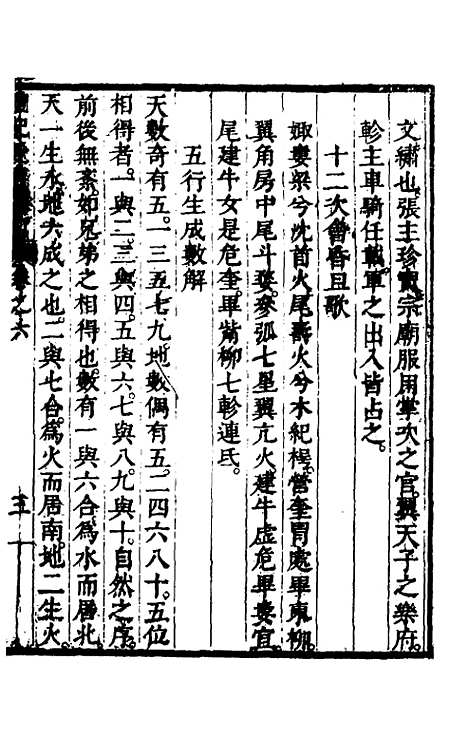 文繡也。張主珍寶宗廟服用掌次之官。翼天子之樂府。
軫主車騎任載軍之出入皆占之。
十二次會昏旦歌
娵婁梁兮沈首火尾壽火兮木紀桯。營奎胃處畢東柳。
翼角房中尾斗婺。參弧七星翼亢火建牛虛危畢婁宜
尾建牛女是危奎。畢觜柳七軫連氐。
五行生成數解
天數奇有五。一三五七九地數偶有五。二四六八十。五位
相得者。一與二。三與四。五與六。七與八。九與十。自然之序。
前後無紊。如兄弟之相得也。數有一與六合。為水而居北
天一生水。地六成之也。二與七合。為火而居南。地二生火。
卷之六
三十